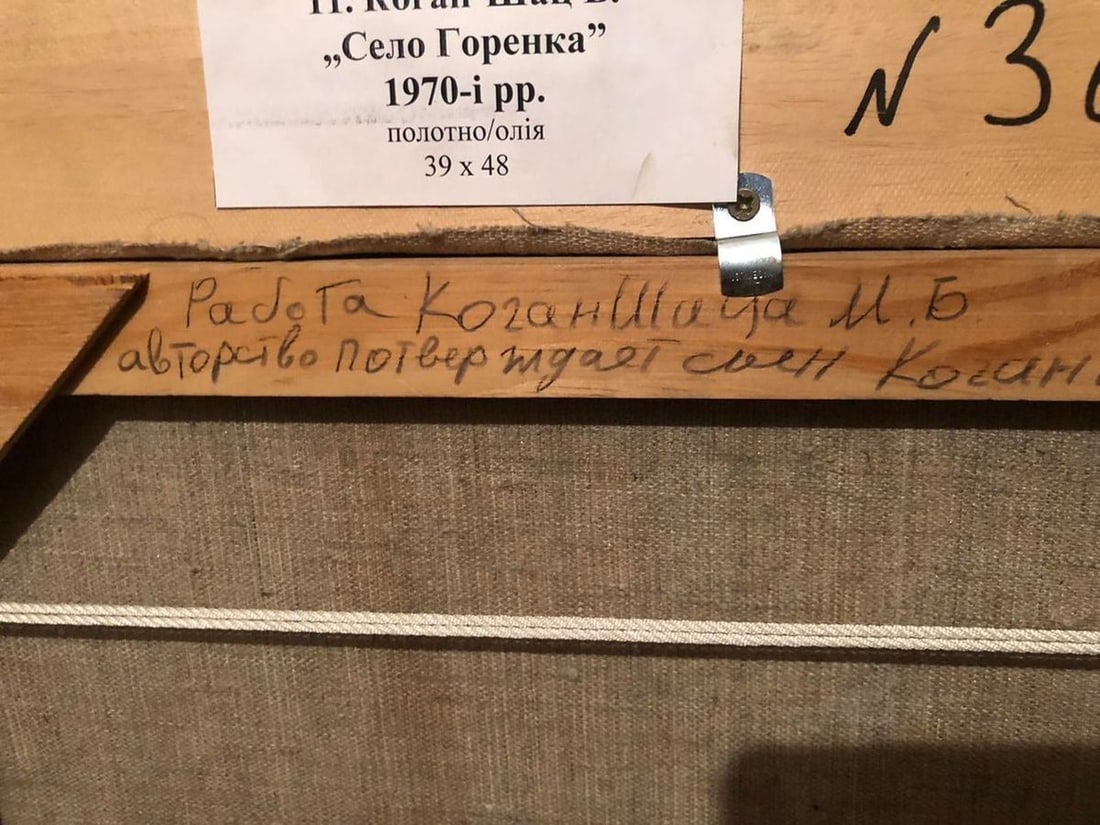 Коган-Шац
„Село Горенка”
1970-і рр.
полотно/олія
39 x 48
N 3
Работа КоганШаца М.Б
авторство потверждает Коган